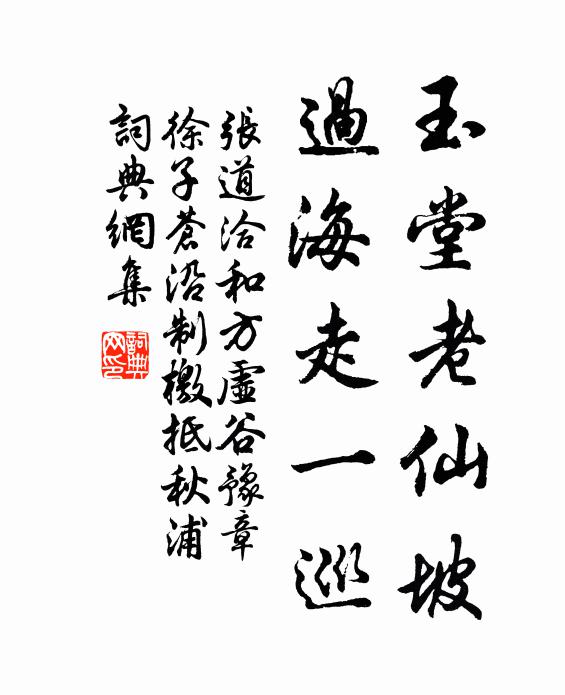 玉堂老仙坡
過海走一巡
張道洽和方虛谷豫章
徐子蒼沿制檄抵秋浦
詞典網集
詞典
网印